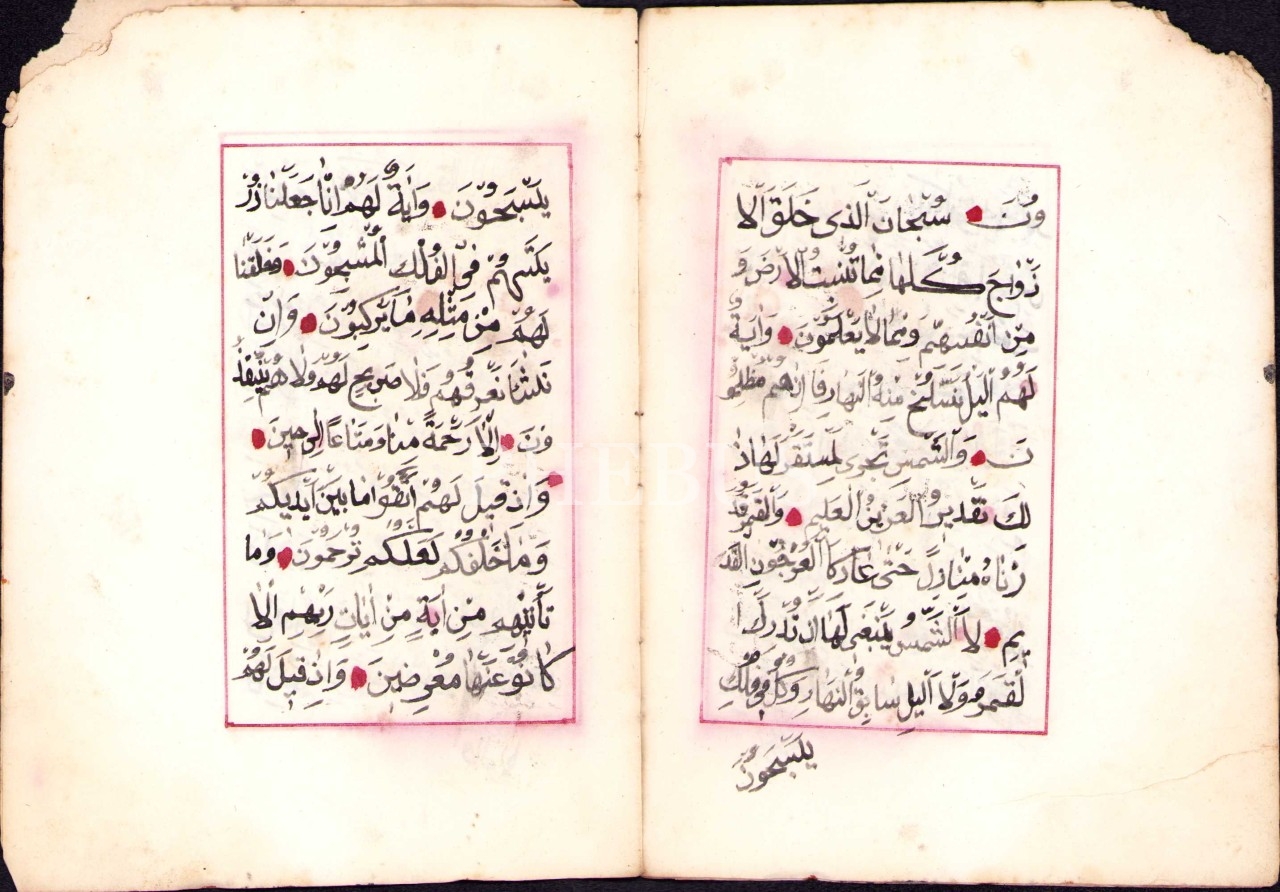 ونَ سُبْحَانَ الَّذِى خَلَقَ الْاَ
زْوَاجَ كُلَّهَا مِمَّا تُنْبِتُ الْاَرْضُ وَ
مِنْ اَنْفُسِهِمْ وَمِمَّا لَا يَعْلَمُونَ وَاٰيَةٌ
لَهُمُ الَّيْلُ نَسْلَخُ مِنْهُ النَّهَارَ فَاِذَاهُمْ مُظْلِمُو
نَ وَالشَّمْسُ تَجْرِى لِمُسْتَقَرٍّ لَهَا ذٰ
لِكَ تَقْدِيرُ الْعَزِيزِ الْعَلِيمِ وَالْقَمَرَ قَدَّ
رْنَاهُ مَنَازِلَ حَتّٰى عَادَ كَالْعُرْجُونِ الْقَدِ
يمِ لَا الشَّمْسُ يَنْبَغِى لَهَا اَنْ تُدْرِكَ ا
لْقَمَرَ وَلَا الَّيْلُ سَابِقُ النَّهَارِ وَكُلٌّ فِى فَلَكٍ
يَسْبَحُونَ
يَسْبَحُونَ وَاٰيَةٌ لَهُمْ اَنَّا حَمَلْنَا ذُرِّ
يَّتَهُمْ فِى الْفُلْكِ الْمَشْحُونِ وَخَلَقْنَا
لَهُمْ مِنْ مِثْلِهِ مَا يَرْكَبُونَ وَاِنْ
نَشَأْ نُغْرِقْهُمْ فَلَا صَرِيخَ لَهُمْ وَلَا هُمْ يُنْقَذُ
ونَ اِلَّا رَحْمَةً مِنَّا وَمَتَاعًا اِلٰى حِينٍ
وَاِذَا قِيلَ لَهُمُ اتَّقُوا مَا بَيْنَ اَيْدِيكُمْ
وَمَا خَلْفَكُمْ لَعَلَّكُمْ تُرْحَمُونَ وَمَا
تَأْتِيهِمْ مِنْ اٰيَةٍ مِنْ اٰيَاتِ رَبِّهِمْ اِلَّا
كَانُوا عَنْهَا مُعْرِضِينَ وَاِذَا قِيلَ لَهُمْ